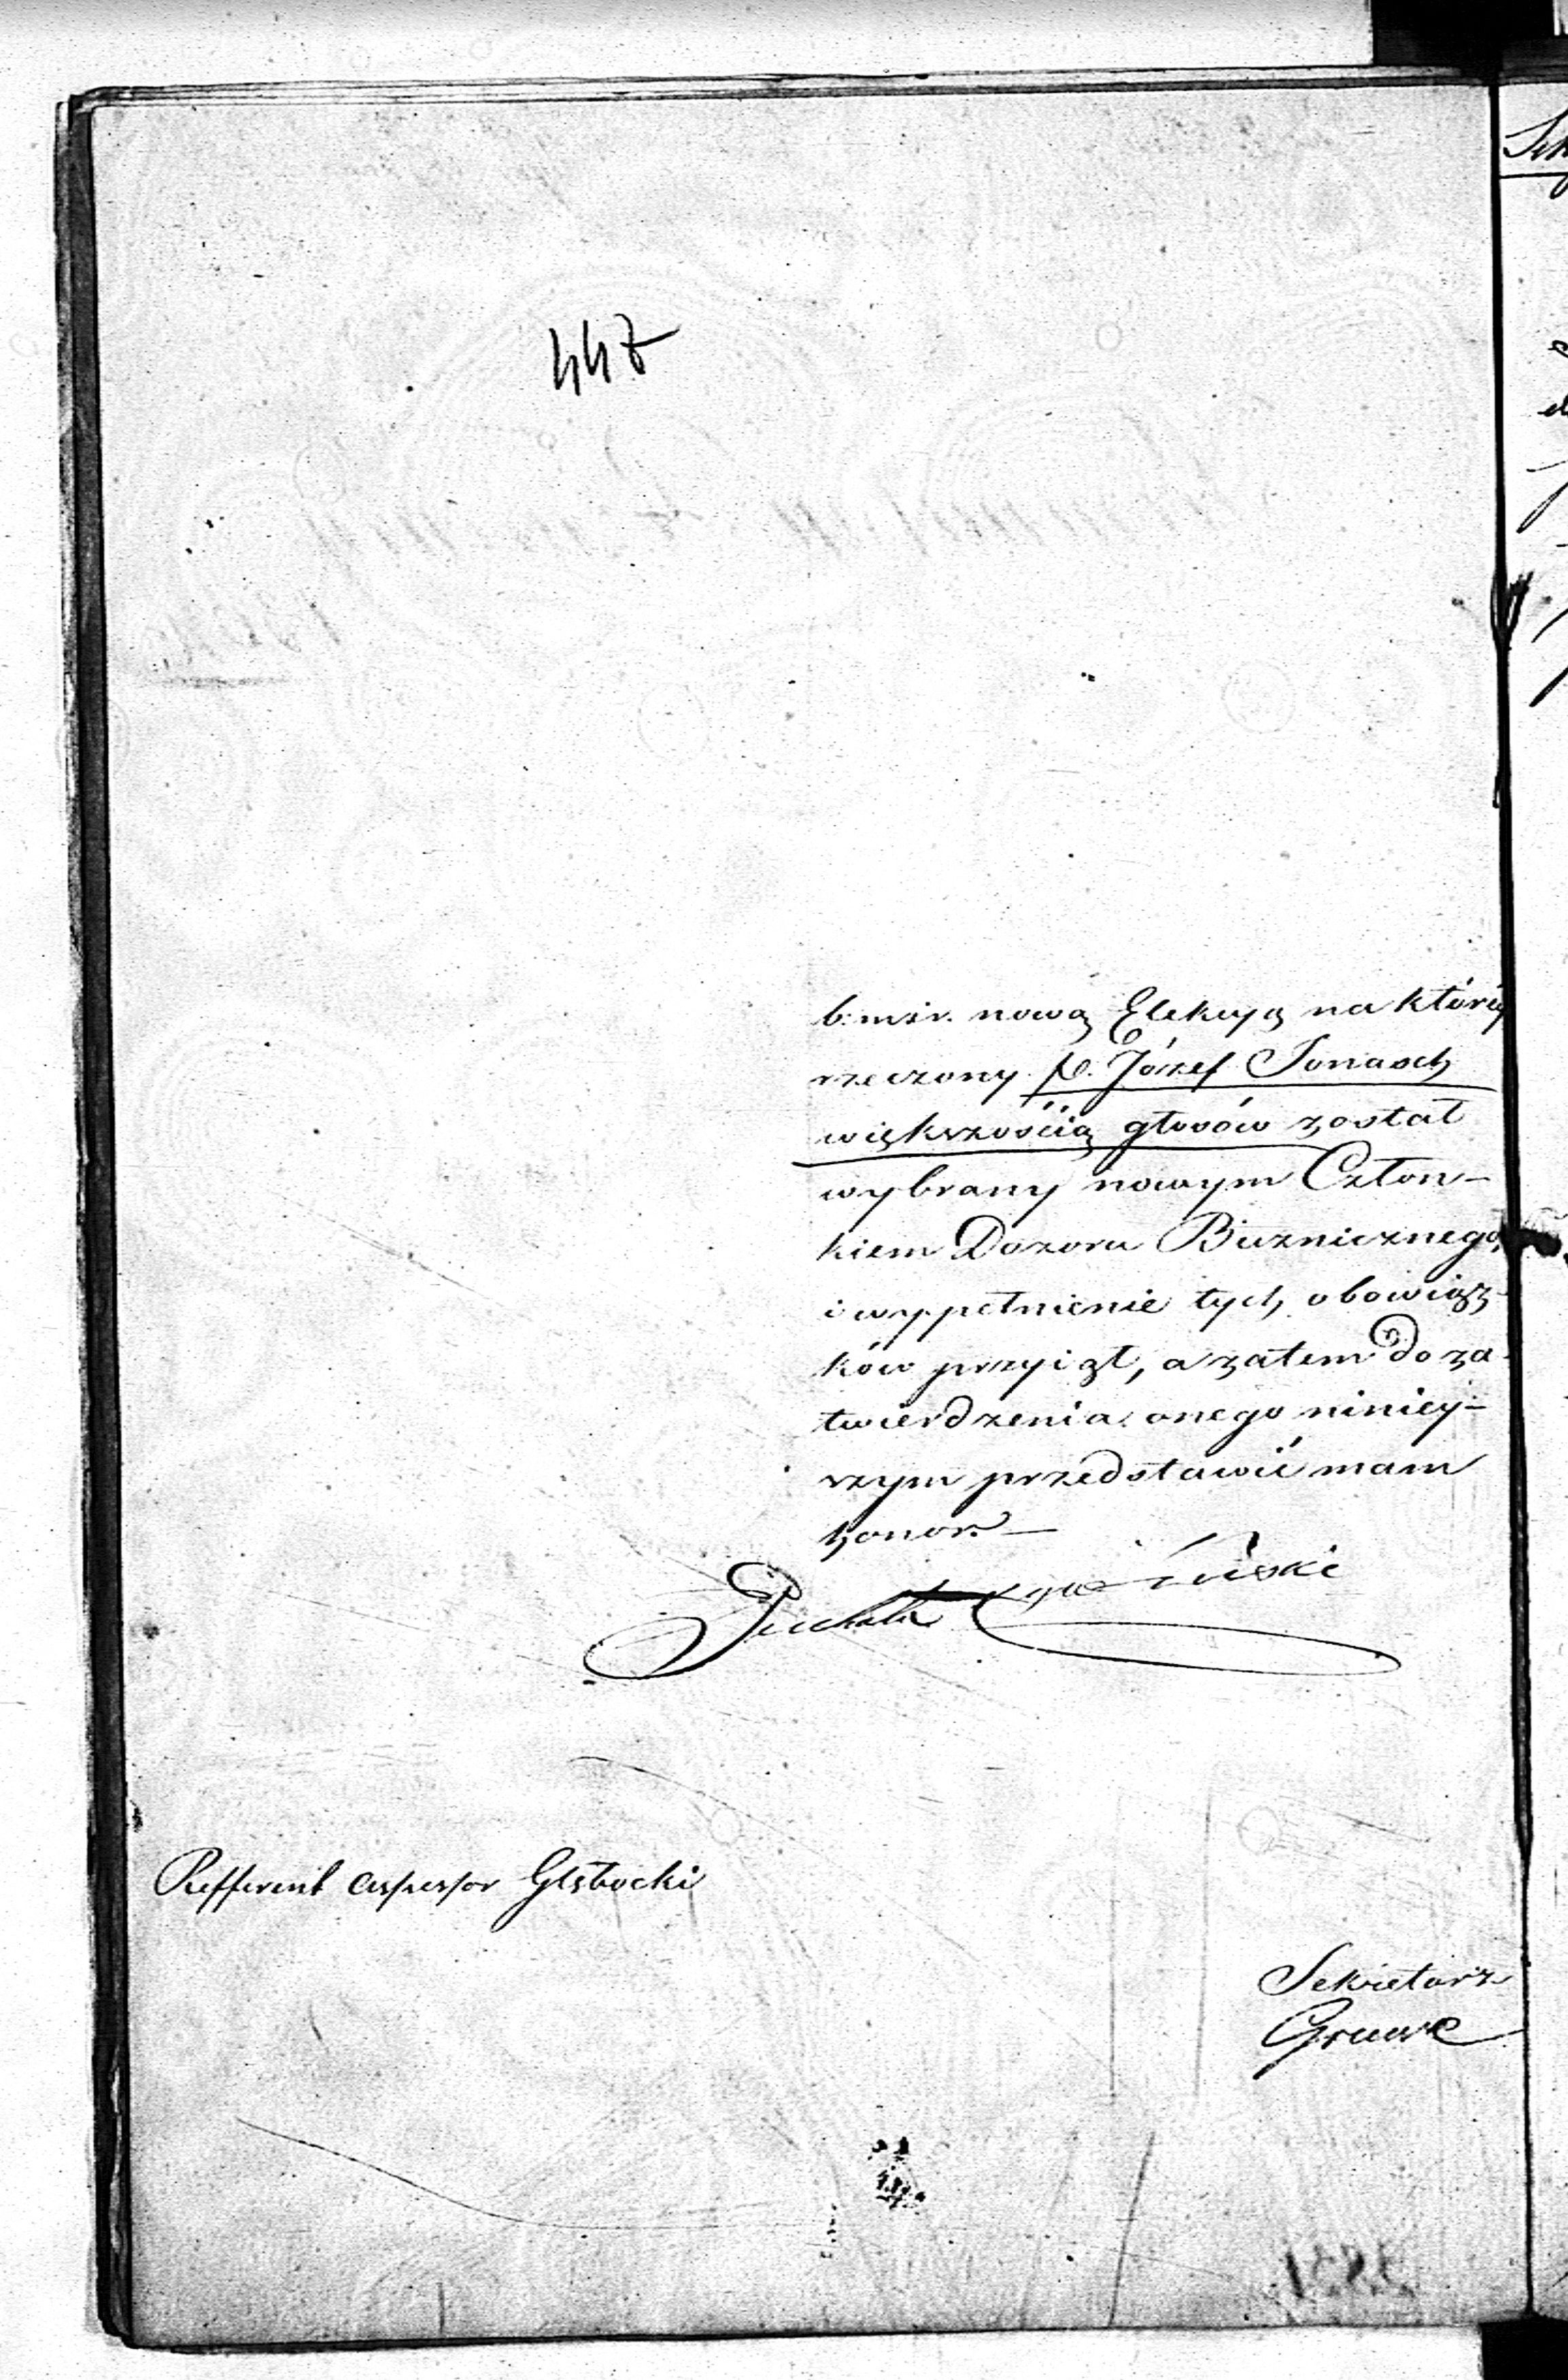 447
b: m. i r. nową Elekcyą na którey
rzeczony P. Józef Jonasch
większościią głosów został
wybrany nowym Człon-
kiem Dozoru Buznicznego,
i wypełnienie tych obowiąz-
ków przyiął, a zatem do za-
twierdzenia onego niniey-
szym przedstawić mam
honor. —
Refferent Assessor Głębocki
Sekretarz